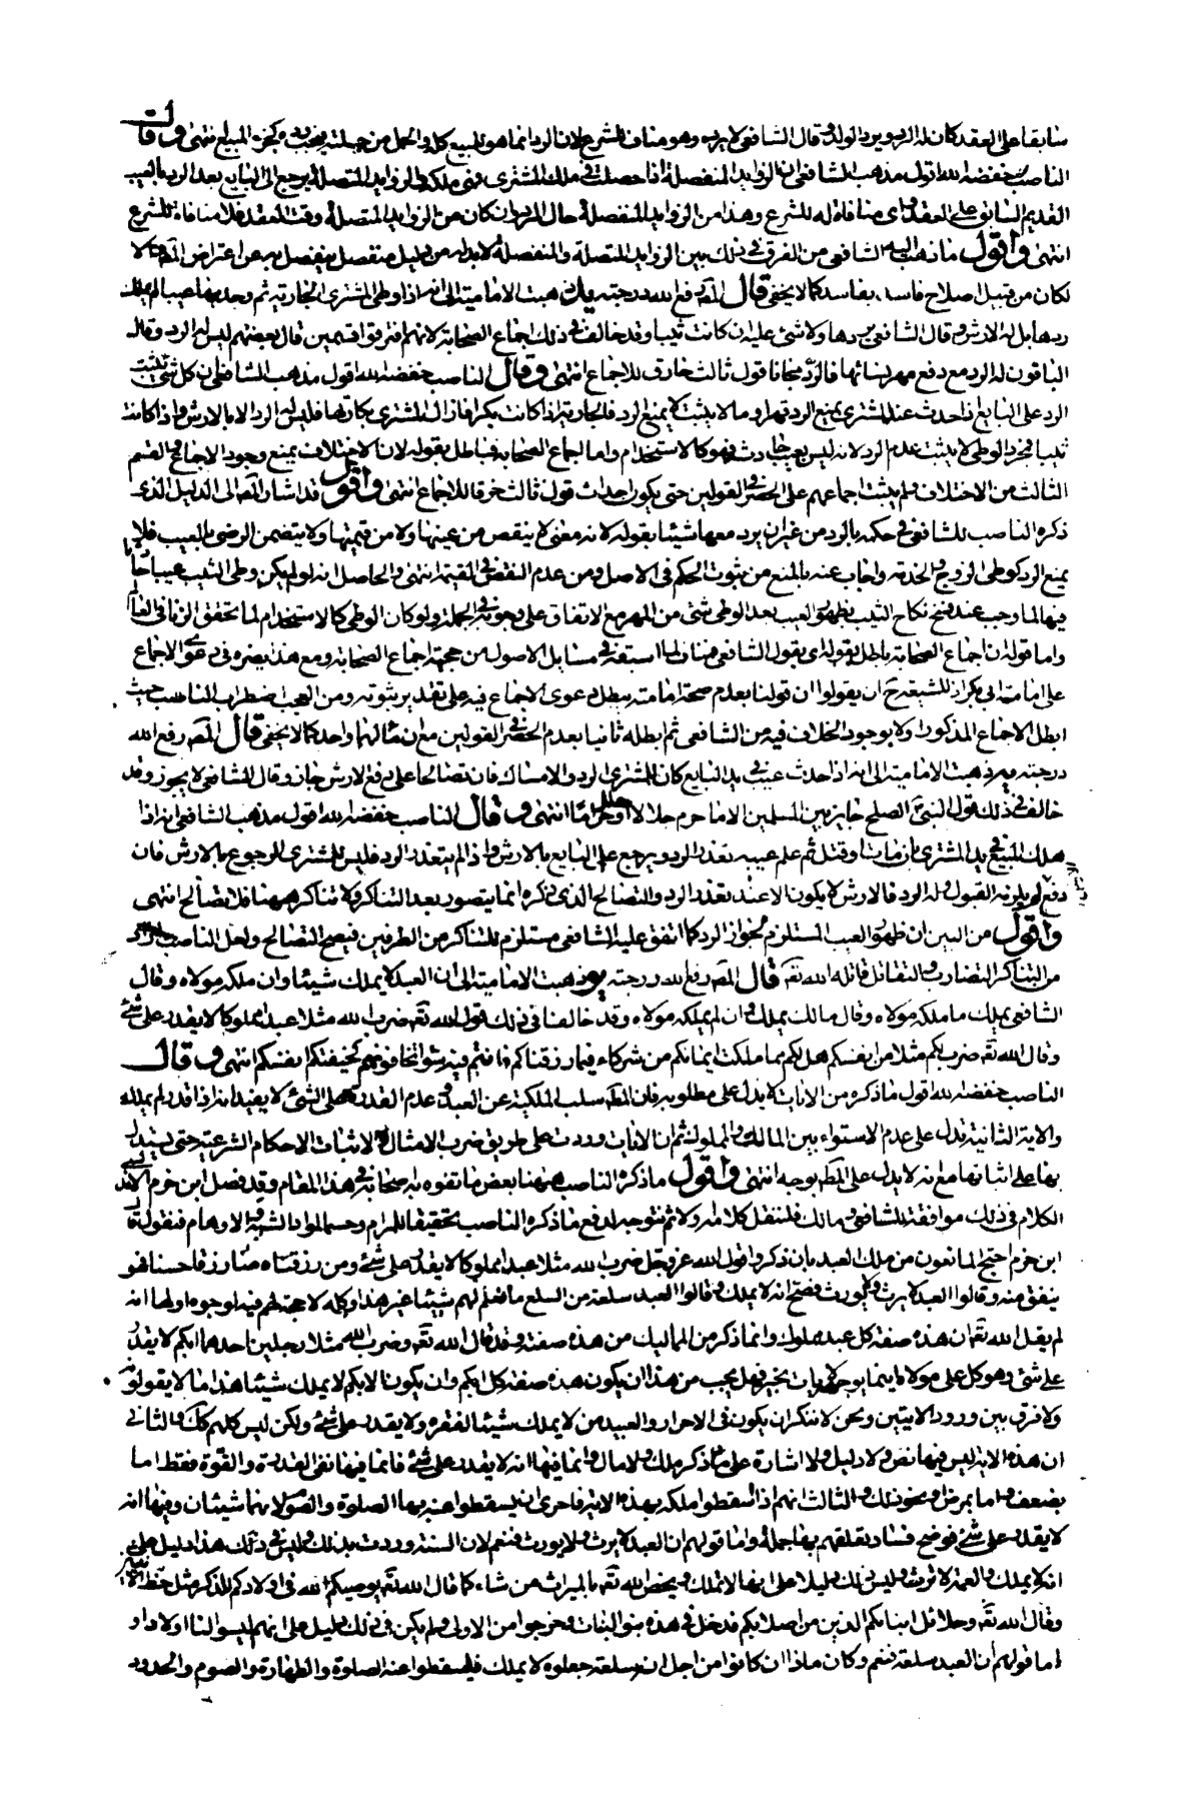 سابقا على العقد كان له الرد ويرد الولد وقال الشافعي لا يرده وهو مناف للشرع لان الرد انما هو للمبيع كله والحمل من جملته فيجب رده كجزء المبيع انتهى وقال
الناصب خفضه الله اقول مذهب الشافعي ان الزوايد المنفصلة اذا حصلت في ملك المشتري فهي ملكه والزوايد المتصلة يرجع الى البايع بعد الرد بالعيب
القديم السابق على العقد واي منافاة له للشرع وهذا من الزوايد المنفصلة حال الرد وان كان من الزوايد المتصلة وقت العقد فلا منافاة للشرع
انتهى واقول ما ذهب اليه الشافعي من الفرق في ذلك بين الزوايد المتصلة والمنفصلة لا بد له من دليل منفصل ينفصل به عن اعتراض المص والا
لكان من قبيل اصلاح فاسد بفاسد كما لا يخفى قال المص رفع الله درجته ذهبت الامامية الى انه اذا وطى المشتري الجارية ثم وجد بها عيبا لم يملك
ردها بل له الارش وقال الشافعي يردها ولا شئ عليه ان كانت ثيبا وقد خالف في ذلك اجماع الصحابة لانهم افترقوا قسمين قال بعضهم ليس له الرد وقال
الباقون له الرد مع دفع مهر نسائها فالرد مجانا قول ثالث خارق للاجماع انتهى وقال الناصب خفضه الله اقول مذهب الشافعي ان كل شئ يثبت
الرد على البايع اذا حدث عند المشتري يمنع الرد قهرا وما لا يثبت لا يمنع الرد فالجارية اذا كانت بكرا فازال المشتري بكارتها فليس له الرد الا بالارش واذا كانت
ثيبا فمجرد الوطي لا يثبت عدم الرد لانه ليس بعيب حادث فهو كالاستخدام واما اجماع الصحابة فباطل بقوله لان الاختلاف يمنع وجود الاجماع والقسم
الثالث من الاختلاف ولم يثبت اجماعهم على الحصر في القولين حتى يكون احداث قول ثالث خرقا للاجماع انتهى واقول قد اشار المص الى الدليل الذي
ذكره الناصب للشافعي في حكمه بالرد من غير ان يرد معها شيئا بقوله لانه معنى لا ينقص من عينها ولا من قيمتها ولا يتضمن الرضى بالعيب فلا
يمنع الرد كوطى الزوج والخدمة واجاب عنه بالمنع من ثبوت الحكم في الاصل ومن عدم النقص في القيمة انتهى والحاصل انه لو لم يكن وطى الثيب عيبا حادثا
فيها لما وجب عند فسخ نكاح الثيب بظهور العيب بعد الوطى شئ من المهر مع الاتفاق على وجوبه في الجملة ولو كان الوطى كالاستخدام لما تحقق الزنا في العالم
واما قوله ان اجماع الصحابة باطل بقوله اي بقول الشافعي مناف لما استقر في مسايل الاصول من حجية اجماع الصحابة ومع هذا يضره في دعوى الاجماع
على امامة ابي بكر اذ للشيعة ح ان يقولوا ان قولنا بعدم صحة امامته يبطل دعوى الاجماع فيه على تقدير ثبوته ومن العجب اضطراب الناصب حيث
ابطل الاجماع المذكور اولا بوجود الخلاف فيه من الشافعي ثم ابطله ثانيا بعدم الحصر في القولين مع ان مثالهما واحد كما لا يخفى قال المص رفع الله
درجته ذهبت الامامية الى انه اذا حدث عيب في يد البايع كان للمشتري الرد والامساك فان تصالحا على دفع الارش جاز وقال الشافعي لا يجوز وقد
خالف في ذلك قول النبي الصلح جايز بين المسلمين الا ما حرم حلالا او حلل حراما انتهى وقال الناصب خفضه الله اقول مذهب الشافعي انه اذا
هلك المبيع في يد المشتري بان مات او قتل ثم علم عيبه تعذر الرد ويرجع على البايع بالارش واذا لم يتعذر الرد فليس للمشتري الرجوع بالارش فان
دفع لم يلزمه القبول وله الرد فالارش لا يكون الا عند تعذر الرد والتصالح الذي ذكره انما يتصور بعد التناكر ولا تناكر ههنا فلا تصالح انتهى
واقول من البين ان ظهور العيب المستلزم لجواز الرد كما اتفق عليه الشافعي مستلزم للتناكر من الطرفين فيصح التصالح ولعل الناصب اراد
من التناكر التضارب والتقاتل قاتله الله تع قال المص رفع الله درجته ذهبت الامامية الى ان العبد لا يملك شيئا وان ملكه مولاه وقال
الشافعي يملك ما ملكه مولاه وقال مالك يملك وان لم يملكه مولاه وقد خالفنا في ذلك قول الله تع ضرب الله مثلا عبدا مملوكا لا يقدر على شئ
وقال الله تع ضرب لكم مثلا من انفسكم هل لكم مما ملكت ايمانكم من شركاء فيما رزقناكم فانتم فيه سواء تخافونهم كخيفتكم انفسكم انتهى وقال
الناصب خفضه الله اقول ما ذكر من الايات لا يدل على مطلوبه فان الله سلب الملكية عن العبد وعدم القدرة على الشئ لا يفيد انه اذا قدر لم يملك
والاية الثانية تدل على عدم الاستواء بين المالك والمملوك ثم ان الايات وردت على طريق ضرب الامثال لا لاثبات الاحكام الشرعية حتى يستدل
بها على اثباتها مع انه لا يدل على المط بوجه انتهى واقول ما ذكره الناصب ههنا بعض ما تفوه به اصحابه في هذا المقام وقد فصل ابن حزم الاندلسي
الكلام في ذلك موافقة للشافعي ومالك فلننقل كلامه ولا ثم نتوجه لدفع ما ذكره الناصب تحقيقا للمرام وحسما لمواد الشبه والاوهام فنقول قال
ابن حزم احتج المانعون من ملك العبد بان ذكروا قول الله عز وجل ضرب الله مثلا عبدا مملوكا لا يقدر على شئ ومن رزقناه منا رزقا حسنا فهو
ينفق منه وقالوا العبد لا يرث ولا يورث فصح انه لا يملك وقالوا العبد سلعة من السلع ما نعلم لهم شيئا غير هذا وكله لا حجة لهم فيه لوجوه اولها انه
لم يقل الله تع ان هذه صفة كل عبد مملوك وانما ذكر من المماليك من هذه صفته وقد قال الله تع وضرب الله مثلا رجلين احدهما ابكم لا يقدر
على شئ وهو كل على مولاه اينما يوجهه لا يات بخير فهل يجب من هذا ان يكون هذه صفة كل ابكم وان يكون الابكم لا يملك شيئا هذا ما لا يقولونه
ولا فرق بين ورود الايتين ونحن لا ننكر ان يكون في الاحرار والعبيد من لا يملك شيئا لفقره ولا يقدر على شئ ولكن ليس كلهم كك والثاني
ان هذه الاية ليس فيها نص ولا دليل ولا اشارة على ما ذكر ملك ولا مال وانما فيها انه لا يقدر على شئ فانما فيها نفى القدرة والقوة فقط اما
بضعف واما بمرض او نحو ذلك والثالث انهم اذا اسقطوا ملكه بهذه الاية فاحرى ان يسقطوا عنه بها الصلوة والصوم لانهما شيئان وفيها انه
لا يقدر على شئ فوضح فساد تعلقهم بها جملة واما قولهم ان العبد لا يرث ولا يورث فنعم لان السنة وردت بذلك وليس في ذلك هذا دليل على
انه لا يملك والعمة لا ترث وليس ذلك دليلا على انها لا تملك ويخص الله تع بالميراث من شاء كما قال الله تع يوصيكم الله في اولادكم للذكر مثل حظ الانثيين
وقال الله تع وحلائل ابنائكم الذين من اصلابكم فدخل في هذه بنو البنات وخرجوا من الاولى ولم يكن في ذلك دليل على انهم ليسوا لنا اولادا و
اما قولهم ان العبد سلعة فنعم وكان ماذا ان كانوا من اجل انه سلعة جعلوه لا يملك فليسقطوا عنه الصلوة والطهارة والصوم والحدود